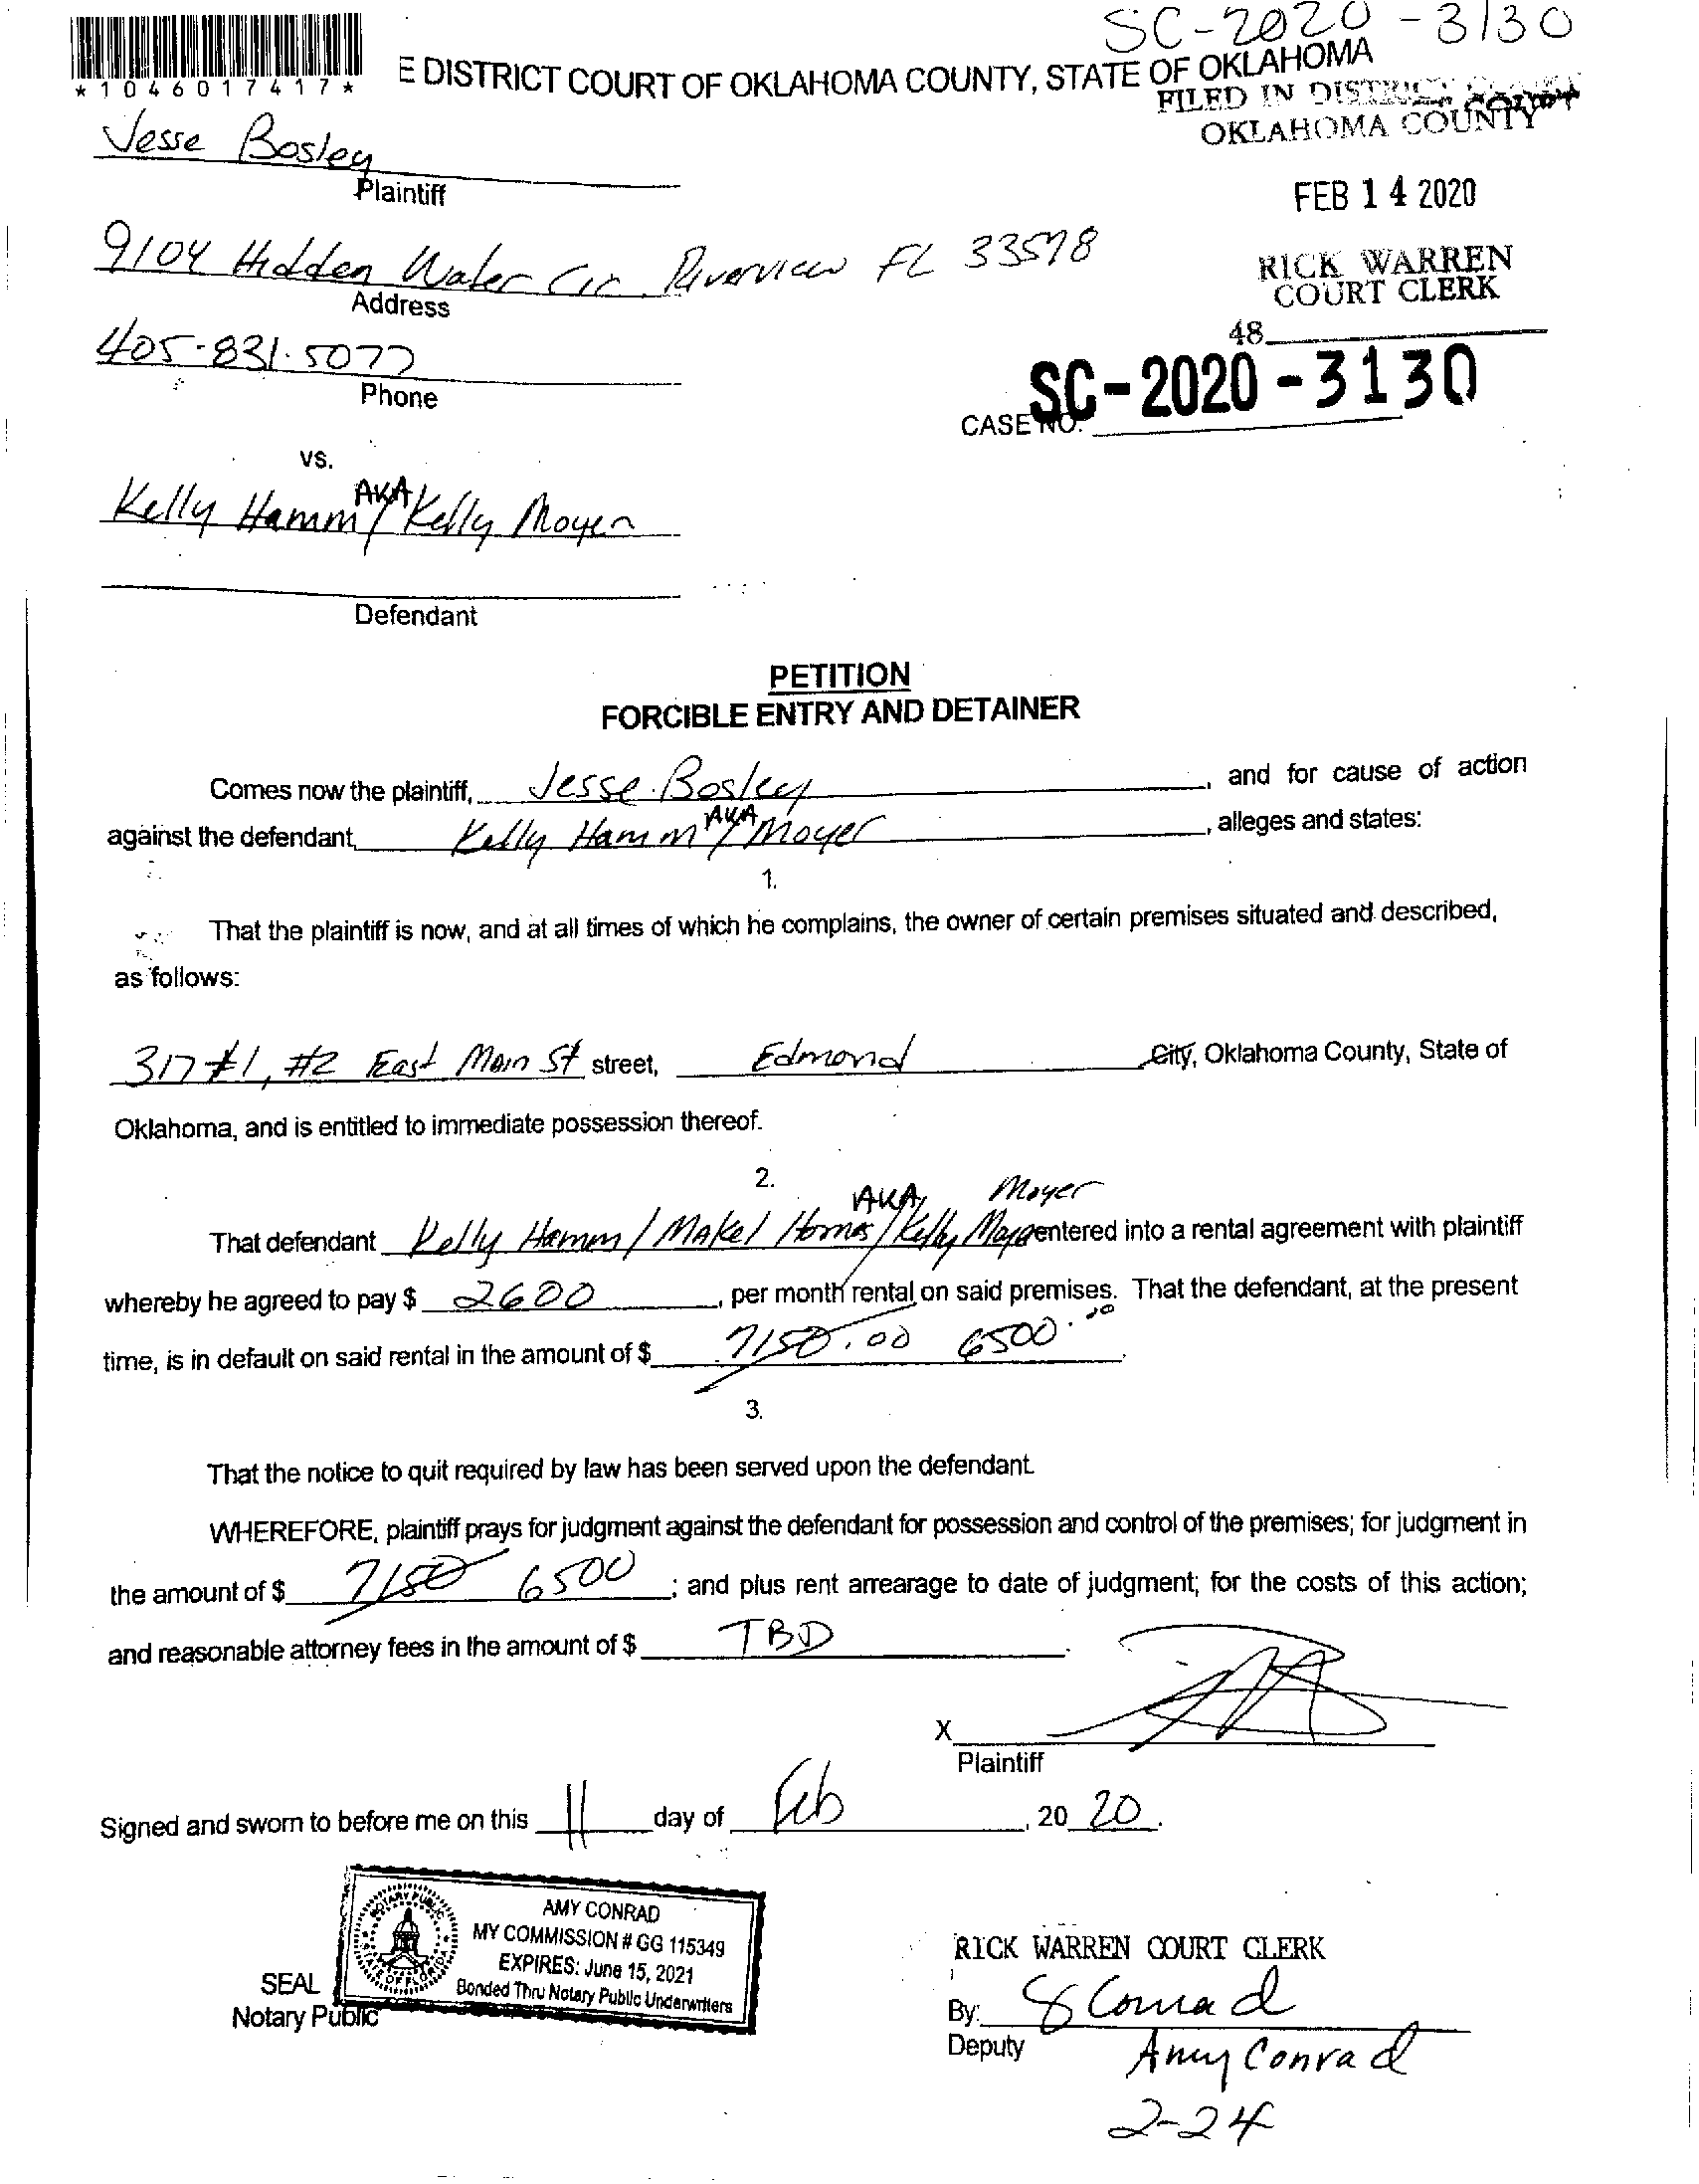 SC-2020-3130
*1046017417*
E DISTRICT COURT OF OKLAHOMA COUNTY, STATE OF OKLAHOMA
FILED IN DISTRICT COURT
OKLAHOMA COUNTY
Jesse Bosley
Plaintiff
FEB 14 2020
9104 Hidden Water Cir. Riverview FL 33578
Address
RICK WARREN
COURT CLERK
405-831-5077
Phone
48
CASE NO. SC-2020-3130
vs.
Kelly Hamm / AKA Kelly Moyer
Defendant
PETITION
FORCIBLE ENTRY AND DETAINER
Comes now the plaintiff, Jesse Bosley, and for cause of action
against the defendant, Kelly Hamm / AKA Moyer, alleges and states:
1.
That the plaintiff is now, and at all times of which he complains, the owner of certain premises situated and described,
as follows:
317 #1, #2 East Main St street, Edmond City, Oklahoma County, State of
Oklahoma, and is entitled to immediate possession thereof.
2.
AKA Moyer
That defendant Kelly Hamm / Makel Homes / Kelly entered into a rental agreement with plaintiff
whereby he agreed to pay $ 2600, per month rental on said premises. That the defendant, at the present
time, is in default on said rental in the amount of $ 7150.00 6500.00.
3.
That the notice to quit required by law has been served upon the defendant.
WHEREFORE, plaintiff prays for judgment against the defendant for possession and control of the premises; for judgment in
the amount of $ 7150 6500; and plus rent arrearage to date of judgment; for the costs of this action;
and reasonable attorney fees in the amount of $ TBD.
X
Plaintiff
Signed and sworn to before me on this 11 day of Feb, 20 20.
NOTARY PUBLIC
STATE OF FLORIDA
AMY CONRAD
MY COMMISSION # GG 115349
EXPIRES: June 15, 2021
Bonded Thru Notary Public Underwriters
SEAL
Notary Public
RICK WARREN COURT CLERK
By: Conrad
Deputy
Amy Conrad
2-24